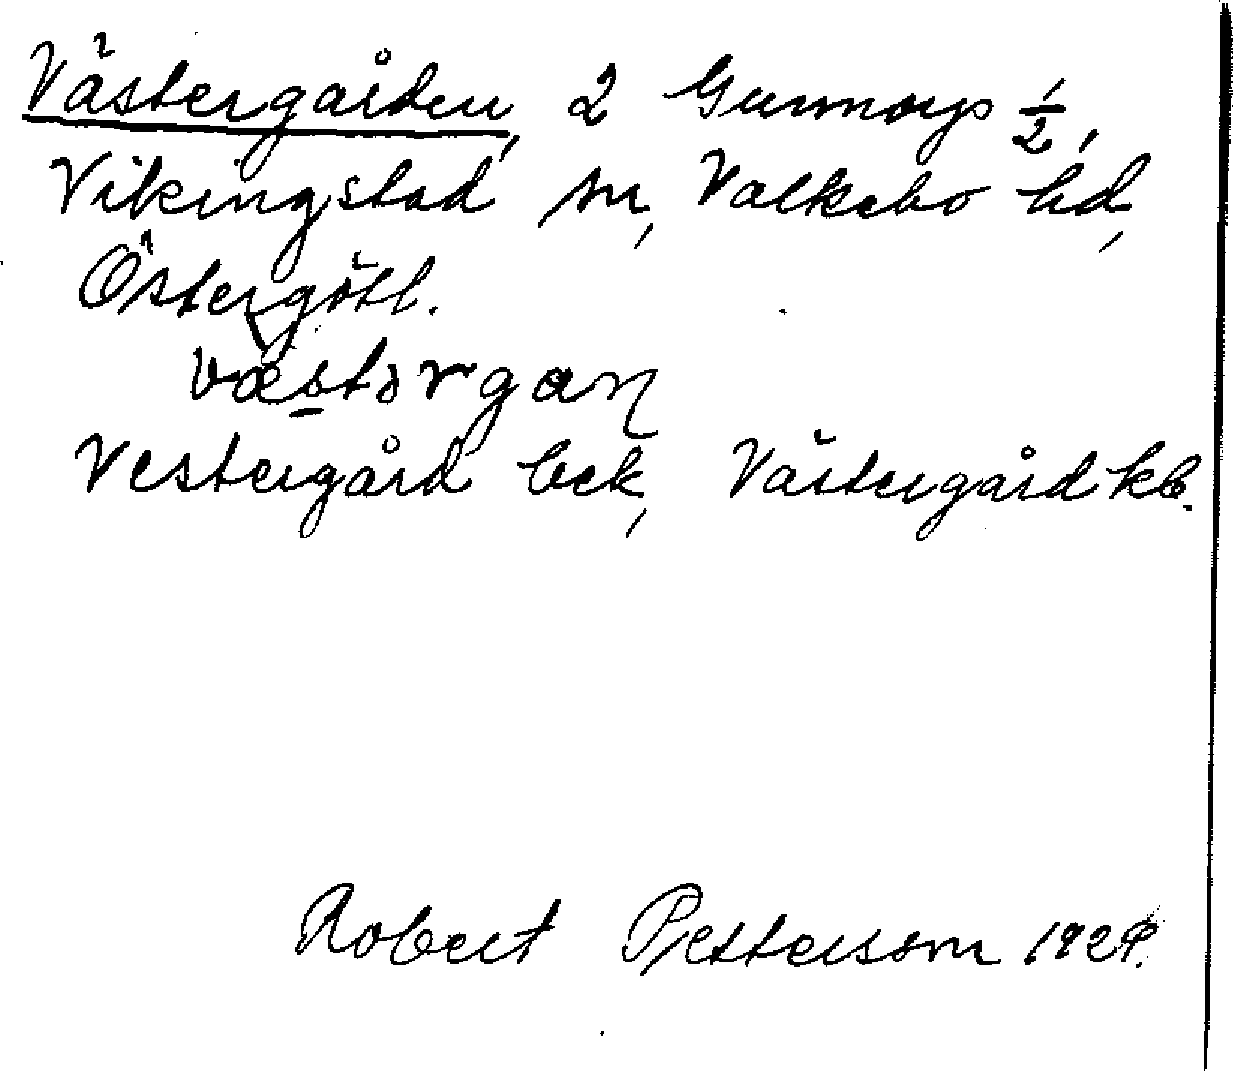 Västergården, 2 Gunnorp 1/2,
Vikingstad sn, Valkebo hd,
Östergötl.
væstərgaɳ
Vestergård bek, Västergård kb.
Robert Pettersson